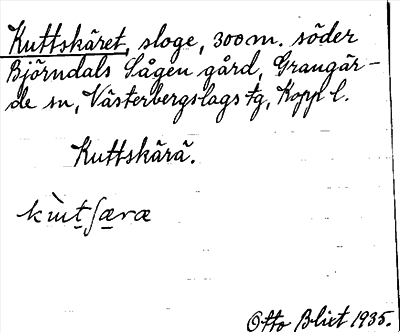 Kuttskäret, sloge, 300 m. söder
Björndals Sågen gård, Grangär-
de sn, Västerbergslags tg, Kopp l.
Kuttskärä.
kùtʃæræ
Otto Blixt 1935.